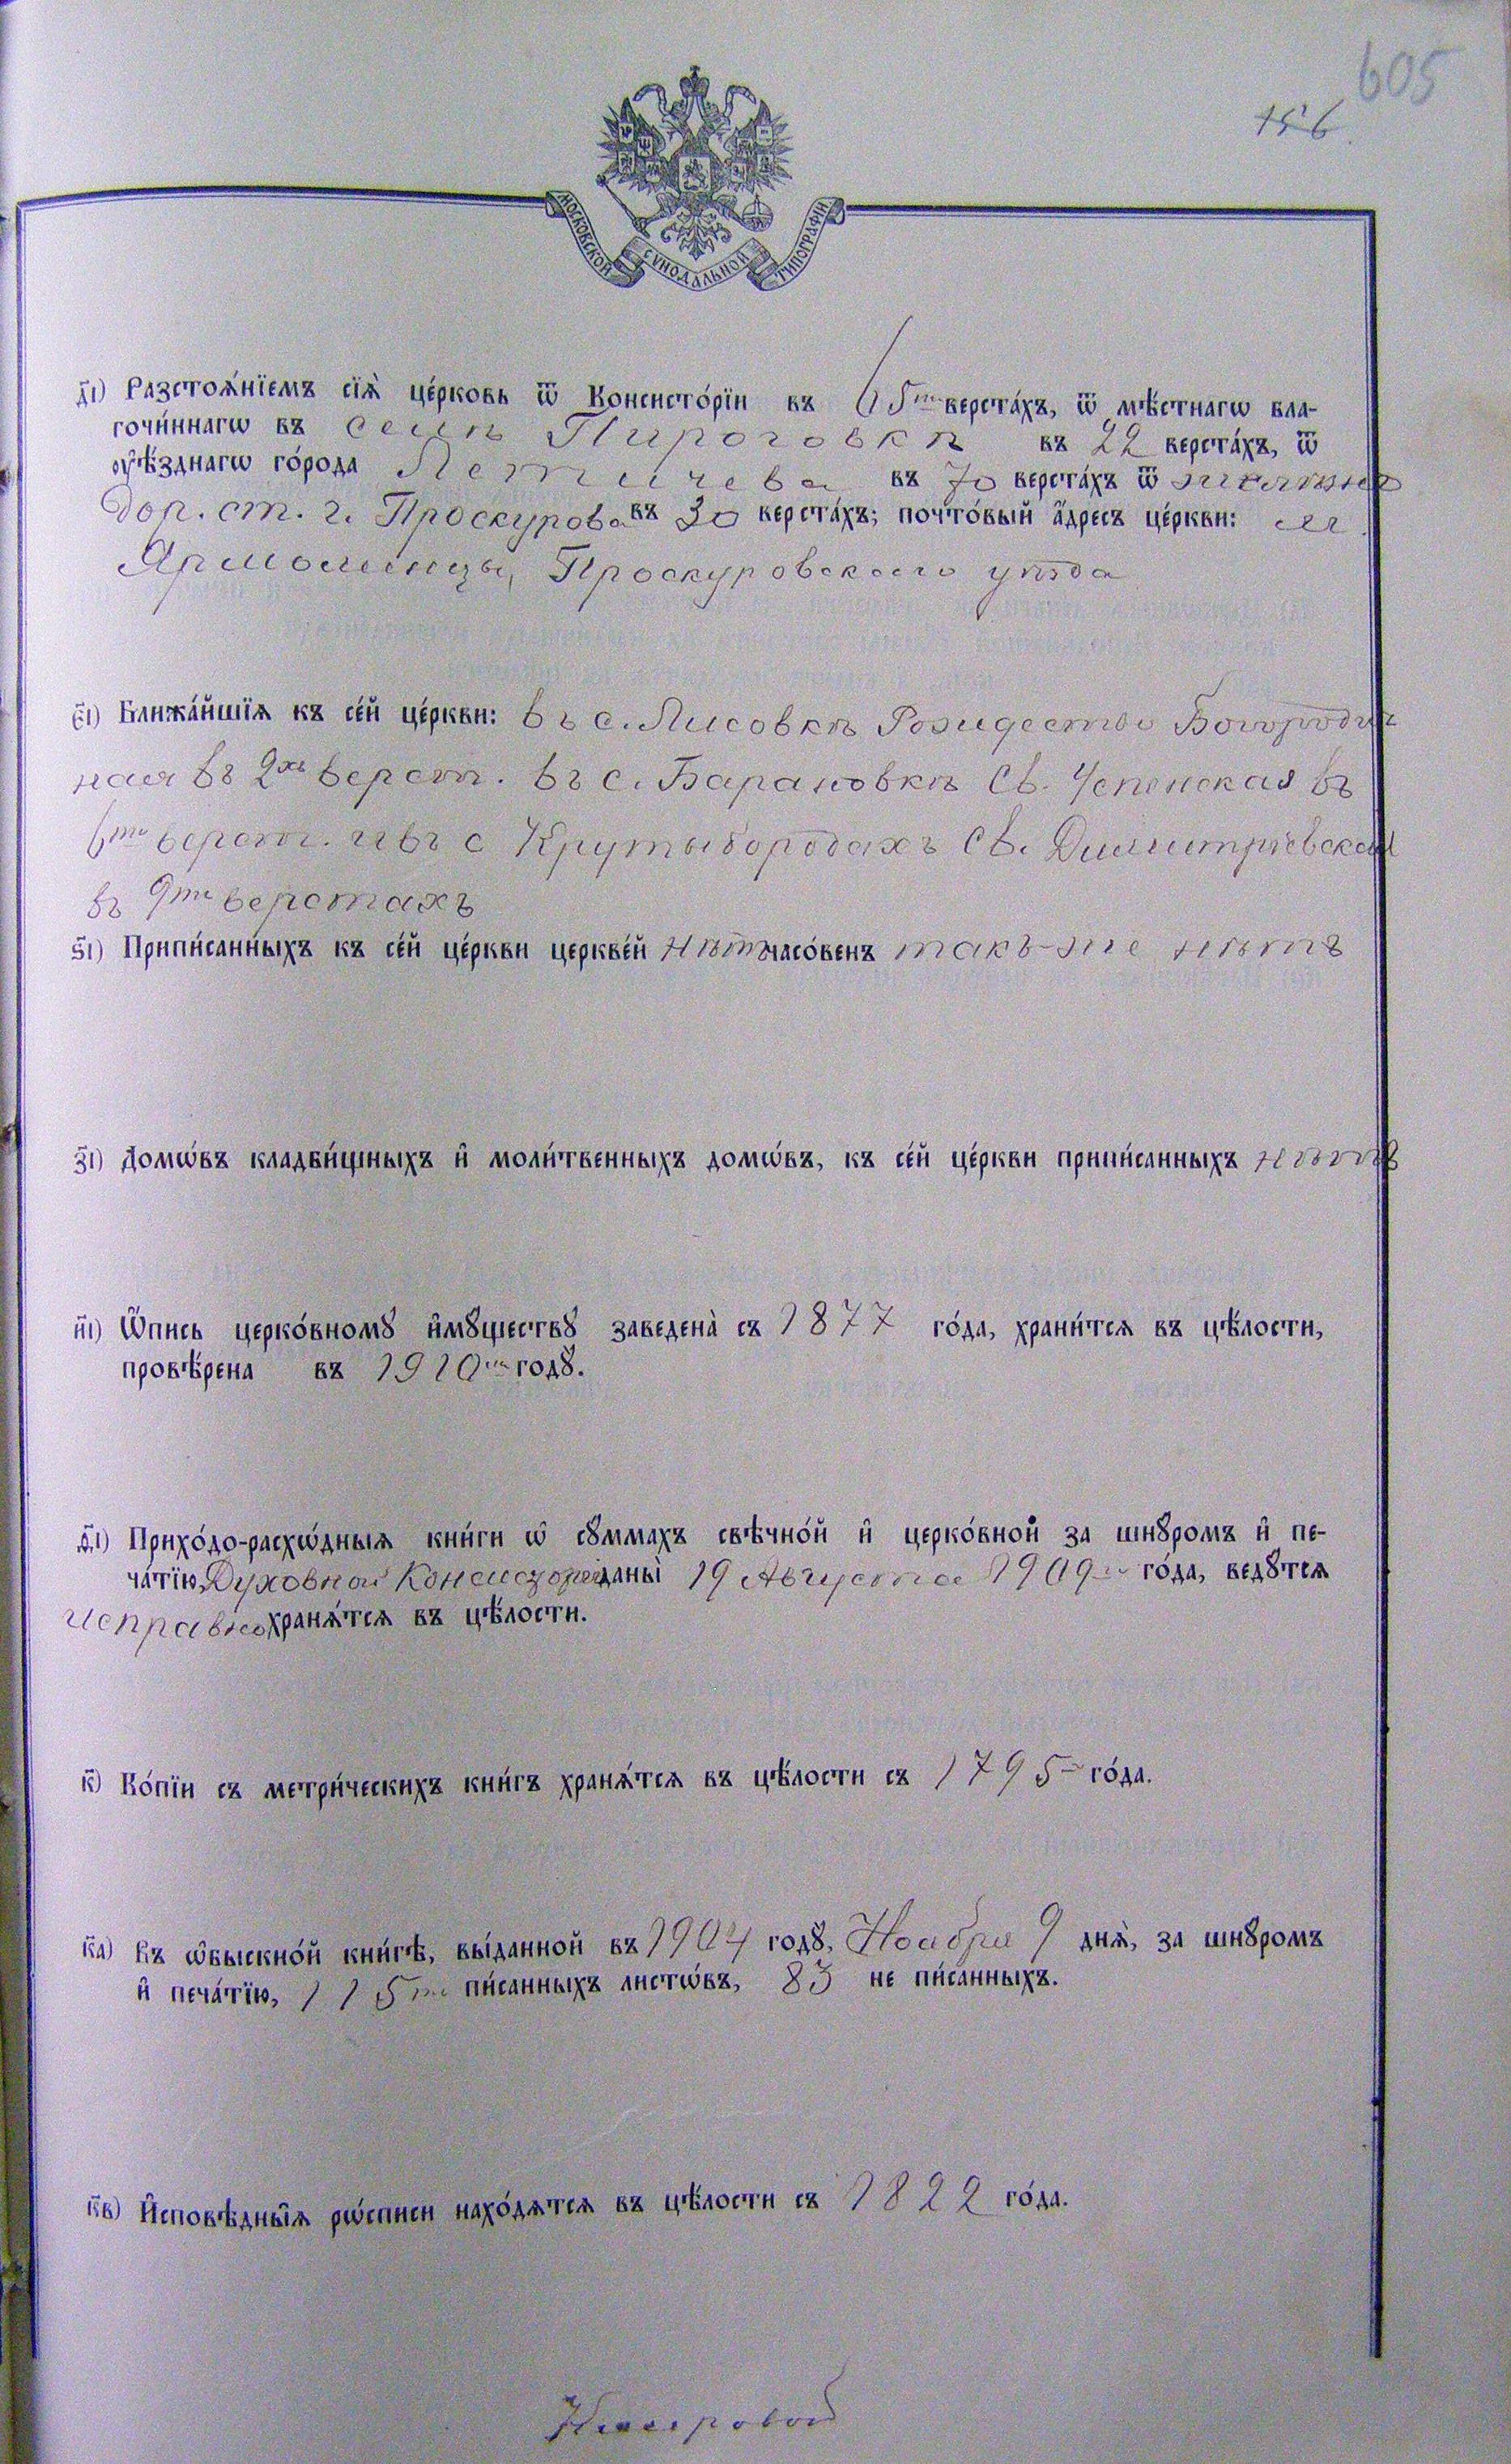 605
156
МОСКОВСКОЙ СѴНОДАЛЬНОЙ ТИПОГРАФІИ
д҃і) Разстоѧ́нїемъ сїѧ̀ це́рковь ѿ Консисто́рїи въ 65ти верста́хъ, ѿ мѣ́стнагѡ бла-
гочи́ннагѡ въ селѣ Пироговкѣ въ 22 верста́хъ, ѿ
ᲂу҆ѣ́зднагѡ го́рода Летичева въ 70 верста́хъ ѿ желѣзно
дор. ст. г. Проскурова въ 30 верста́хъ; почто́вый а҆́дресъ це́ркви: м.
Ярмолинцы, Проскуровскаго уѣзда
є҃і) Ближа́йшїѧ къ се́й це́ркви: въ с. Лисовкѣ Рождество Богородич
ная въ 2хъ верст. въ с. Барановкѣ Св. Успенская въ
6ти верст. и въ с Крутыбородахъ Св. Димитріевская
въ 9ти верстахъ
ѕ҃і) Припи́санныхъ къ се́й це́ркви церкве́й нѣтъ часо́венъ такъ-же нѣтъ
з҃і) Домѡ́въ кладби́щныхъ и҆ моли́твенныхъ домѡ́въ, къ се́й це́ркви припи́санныхъ нѣтъ
и҃і) Ѻ҆́пись церко́вномꙋ и҆мꙋ́ществꙋ заведена̀ съ 1877 го́да, храни́тсѧ въ цѣ́лости,
провѣ́рена въ 1910мъ годꙋ̀.
ѳ҃і) Прихо́до-расхѡ́дныѧ кни́ги ѡ҆ сꙋ́ммахъ свѣчно́й и҆ церко́вной за шнꙋро́мъ и҆ пе-
ча́тїю, Духовной Консисторіи даны̀ 19 Августа 1909 го́да, ведꙋ́тсѧ
исправно хранѧ́тсѧ въ цѣ́лости.
к҃) Ко́пїи съ метри́ческихъ кни́гъ хранѧ́тсѧ въ цѣ́лости съ 1795 го́да.
к҃а) Въ ѡ҆быскно́й кни́гѣ, вы́данной въ 1904 годꙋ̀, Ноября 9 днѧ̀, за шнꙋро́мъ
и҆ печа́тїю, 115ти пи́санныхъ листѡ́въ, 83 не пи́санныхъ.
к҃в) И҆сповѣ́дныѧ рѡ́списи нахо́дѧтсѧ въ цѣ́лости съ 1822 го́да.